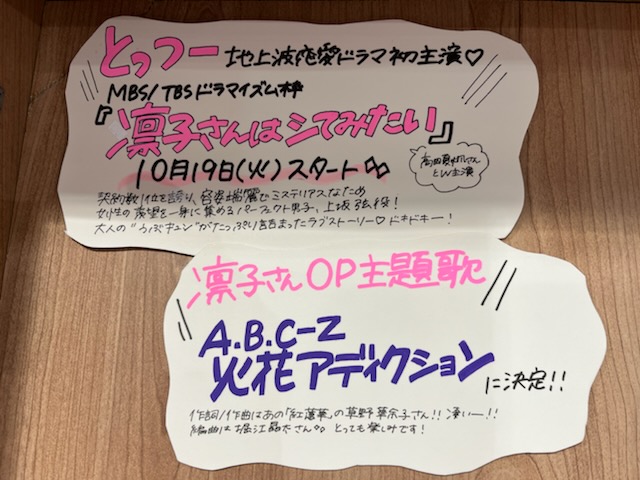 とっつー 地上波恋愛ドラマ初主演♡
MBS/TBSドラマイズム枠
『凛子さんはシてみたい』
10月19日(火)スタート
高田夏帆さん
とW主演
契約数1位を誇り、容姿端麗でミステリアスなため
女性の羨望を一身に集めるパーフェクト男子、上坂弦役!
大人の"うぶキュン"がたっぷり詰まったラブストーリー♡ドキドキー!
凛子さんOP主題歌
A.B.C-Z
火花アディクション
に決定!!
作詞/作曲はあの「紅蓮華」の草野華余子さん!!凄いー!!
編曲は堀江晶太さん とっても楽しみです!